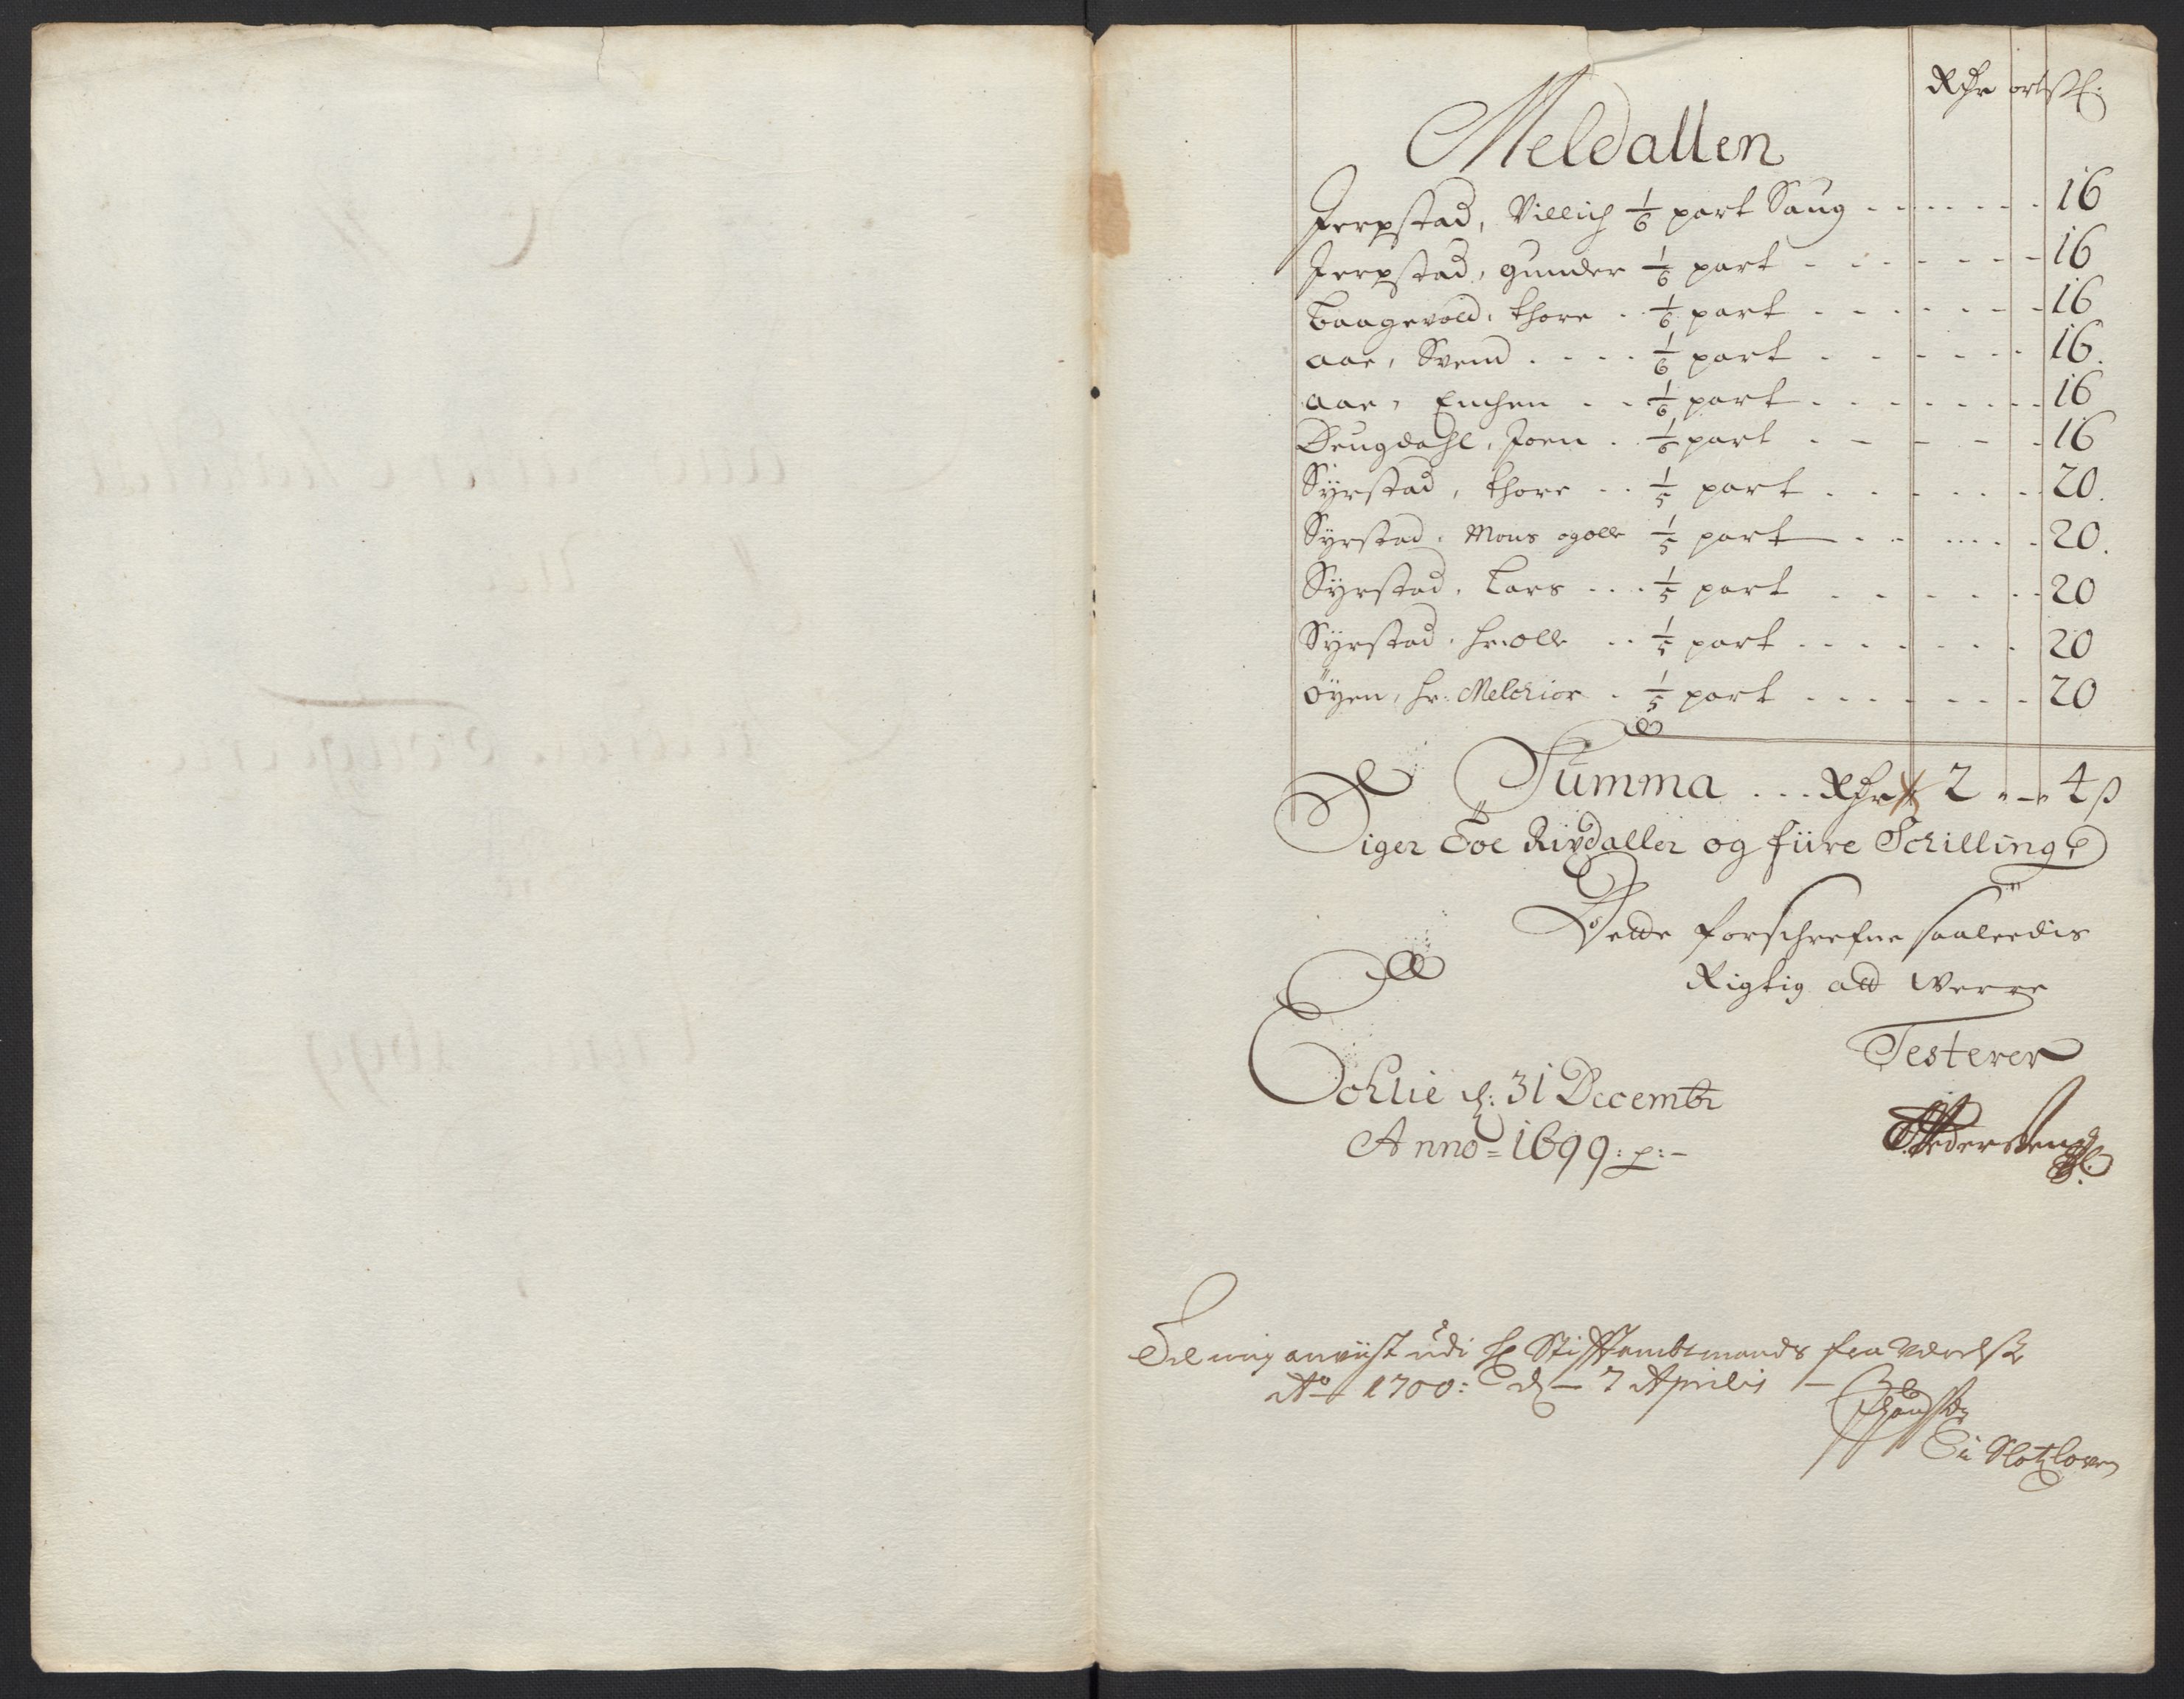 Rdr ort sk:
Meldallen
Jerpstad, Villich 1/6 part Saug - - - - - - 16
Jerpstad, gunder 1/6 part - - - - - - 16
Laagevold, thore - - 1/6 part - - - - - - 16
aae, Svend - - - - 1/6 part - - - - - - 16.
aae, Enchen - - 1/6 part - - - - - - 16
Drugdahl, Joen - - 1/6 part - - - - - 16
Syrstad, thore - - 1/5 part - - - - - - 20.
Syrstad, Mons og olle 1/5 part - - - - - - 20.
Syrstad, Lars - - - 1/5 part - - - - - - 20
Syrstad, hr: olle - - 1/5 part - - - - - - 20
öyen, hr: Melchior - 1/5 part - - - - - - 20
Summa - - - Rdr 2 „ — „ 4 ß
Siger Toe Rixdaller og fiire Schilling
Dette forschrefne saaleedis
Rigtig att werre
Testerer
Sohlie d: 31 Decembr
Anno = 1699 : p: -
anviist udi hr Stifftambtmands fraværelse
Ao 1700: d — 7 Aprilis —